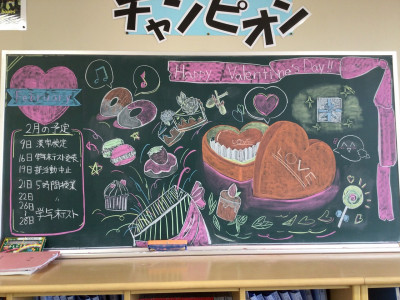 チャンピオン
Happy Valentine's Day!!
February
2月の予定
9日 漢字検定
16日 学年末テスト発表
19日 部活動中止
21日 5時間授業
22日 〃
26日
28日 学年末テスト
LOVE